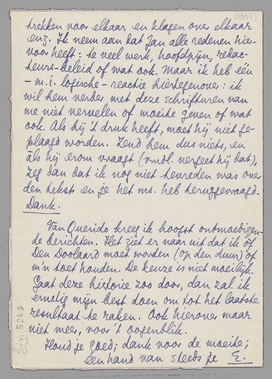 trekken voor elkaar en klagen over elkaar
enz. Ik neem aan dat Jan alle redenen hier-
voor heeft: te veel werk, hoofdpijn, redac-
teurs-beleid of wat ook. Maar ik heb één
- m.i. logische - reactie hiertegenover: ik
wil hem verder met deze schrifturen van
me niet vervelen of moeite geven of wat
ook. Als hij 't drukt heeft, moet hij niet ge-
plaagd worden. Zend hem dus niets, en
áls hij erom vraagt (vrndl. verzeft hij het),
zeg dan dat ik nog niet tevreden was over
den tekst en je het ms. heb teruggevraagd.
Dank.
Van Querido kreeg ik hoogst ontmoedigen-
de berichten. Het ziet er naar uit dat ik óf
Den Doolaard moet worden (op den duur) óf
m'n toet houden. De keuze is niet moeilijk.
Gaat deze historie zoo door, dan zal ik
ernstig mijn best doen om tot het laatste
resultaat te raken. Ook hierover maar
niet meer, voor 't oogenblik.
Houd je goed; dank voor de moeite;
een hand van steeds je E.